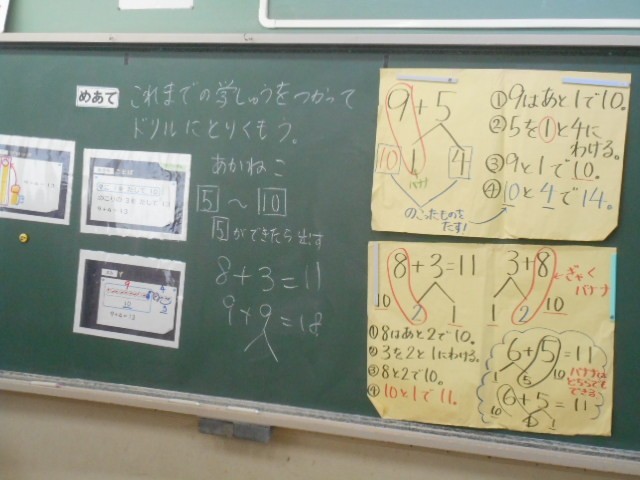 めあて
これまでの学しゅうをつかって
ドリルにとりくもう。
あかねこ
5 〜 10
5ができたら出す
8+3=11
9+9=18
9+5
10 1 4
バナナ
のこったものを
たす!
①9はあと1で10。
②5を1と4に
わける。
③9と1で10。
④10と4で14。
8+3=11
10 2 1
①8はあと2で10。
②3を2と1にわける。
③8と2で10。
④10と1で11。
3+8
1 2 10
←ぎゃく
バナナ
6+5=11
1 5 10
バナナは
どちらでも
できる
6+5=11
10 1